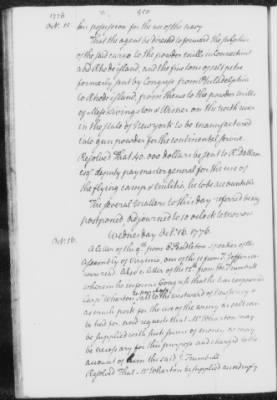 1776
450
Oct. 15
his possession for the use of the navy
That the agent be directed to forward the sulphur
of the said cargo to the powder mills in Connecticut
and Rhode island, and the five tons of salt petre
formerly sent by Congress from Philadelphia
to Rhode island, from thence to the powder mills
of Messrs Livingston & Wisner on the north river
in the state of New york to be manufactured
into gun powder for the continental service.
Resolved That 40.000 dollars be sent to R. Dallam
esqr deputy paymaster general for the use of
the flying camp & militia, he to be accountable
The several matters to this day referred being
postponed, adjourned to 10 oclock to morrow
Wednesday Oct. 16. 1776.
Oct. 16.
A letter of the 9th from E. Pendleton speaker of the
Assembly of Virginia, one of the from Jefferson
were read Also a letter of the 12th from Jos. Trumbull
wherein he informs Congress that he has empowered
Carpr Wharton to purchase salt to the eastward of
as much pork for the use of the army as salt can
be had for, and requests that Mr Wharton may
be supplied with such sums of money as may
be necessary for this purpose and charged to the
account of him the said J. Trumbull
Resolved That Mr Wharton be supplied accordingly